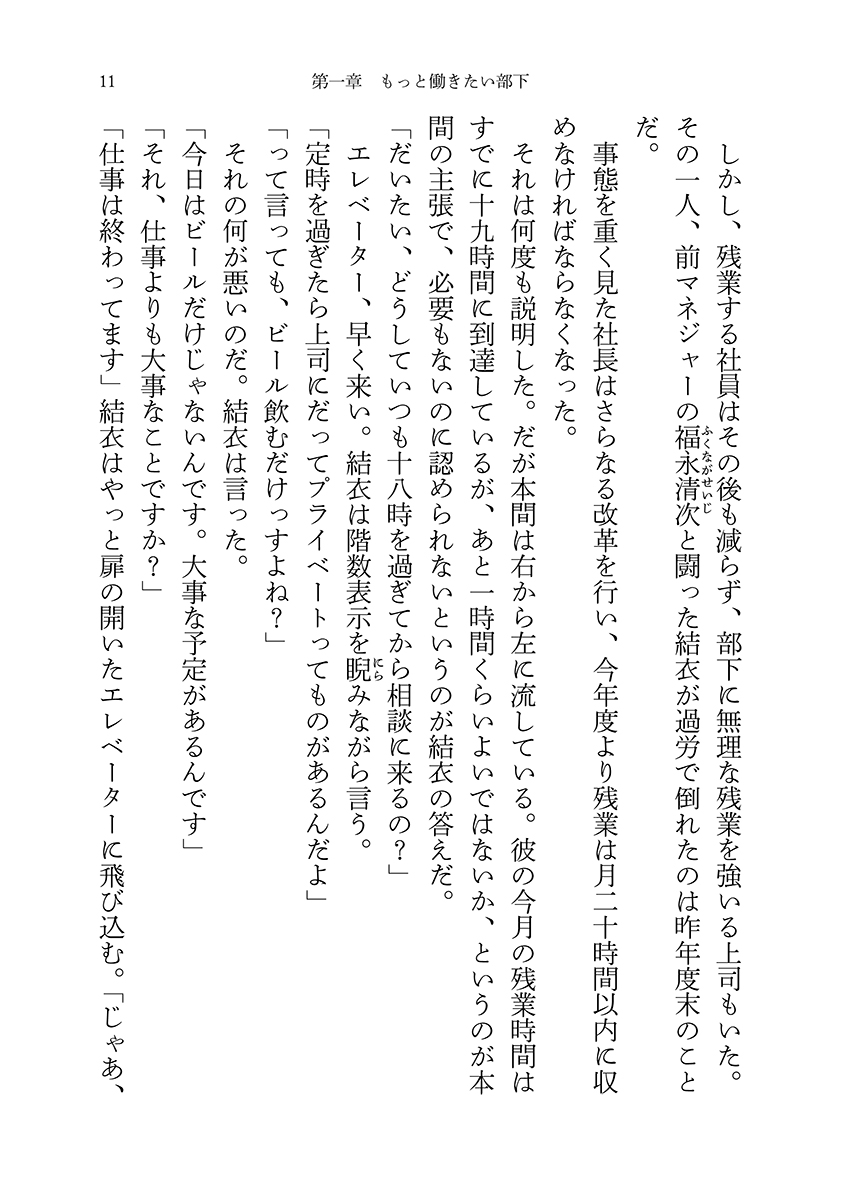 11
第一章　もっと働きたい部下
　しかし、残業する社員はその後も減らず、部下に無理な残業を強いる上司もいた。
その一人、前マネジャーの福永清次と闘った結衣が過労で倒れたのは昨年度末のこと
ふくながせいじ
だ。
　事態を重く見た社長はさらなる改革を行い、今年度より残業は月二十時間以内に収
めなければならなくなった。
　それは何度も説明した。だが本間は右から左に流している。彼の今月の残業時間は
すでに十九時間に到達しているが、あと一時間くらいよいではないか、というのが本
間の主張で、必要もないのに認められないというのが結衣の答えだ。
「だいたい、どうしていつも十八時を過ぎてから相談に来るの？」
　エレベーター、早く来い。結衣は階数表示を睨みながら言う。
にら
「定時を過ぎたら上司にだってプライベートってものがあるんだよ」
「って言っても、ビール飲むだけっすよね？」
　それの何が悪いのだ。結衣は言った。
「今日はビールだけじゃないんです。大事な予定があるんです」
「それ、仕事よりも大事なことですか？」
「仕事は終わってます」結衣はやっと扉の開いたエレベーターに飛び込む。「じゃあ、